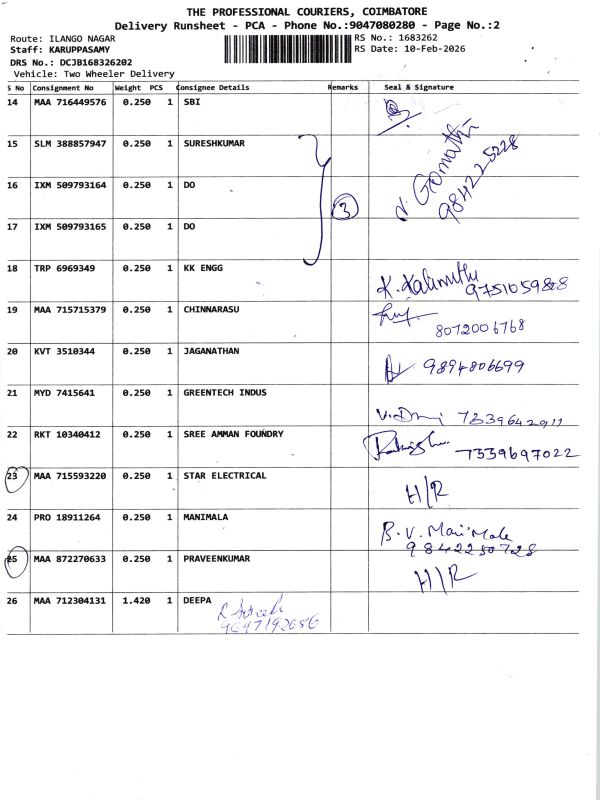 THE PROFESSIONAL COURIERS, COIMBATORE
Delivery Runsheet - PCA - Phone No.:9047080280 - Page No.:2
Route: ILANGO NAGAR RS No.: 1683262
Staff: KARUPPASAMY RS Date: 10-Feb-2026
DRS No.: DCJB168326202
Vehicle: Two Wheeler Delivery
S No Consignment No Weight PCS Consignee Details Remarks Seal & Signature
14 MAA 716449576 0.250 1 SBI
15 SLM 388857947 0.250 1 SURESHKUMAR
16 IXM 509793164 0.250 1 DO 3 V. Gomathi
9842225228
17 IXM 509793165 0.250 1 DO
18 TRP 6969349 0.250 1 KK ENGG K. Kalimuthu
9751059868
19 MAA 715715379 0.250 1 CHINNARASU
8072006768
20 KVT 3510344 0.250 1 JAGANATHAN 9894806699
21 MYD 7415641 0.250 1 GREENTECH INDUS 7339642911
22 RKT 10340412 0.250 1 SREE AMMAN FOUNDRY 7339697022
23 MAA 715593220 0.250 1 STAR ELECTRICAL H/R
24 PRO 18911264 0.250 1 MANIMALA B.V. Manimala
9842250728
25 MAA 872270633 0.250 1 PRAVEENKUMAR H/R
26 MAA 712304131 1.420 1 DEEPA